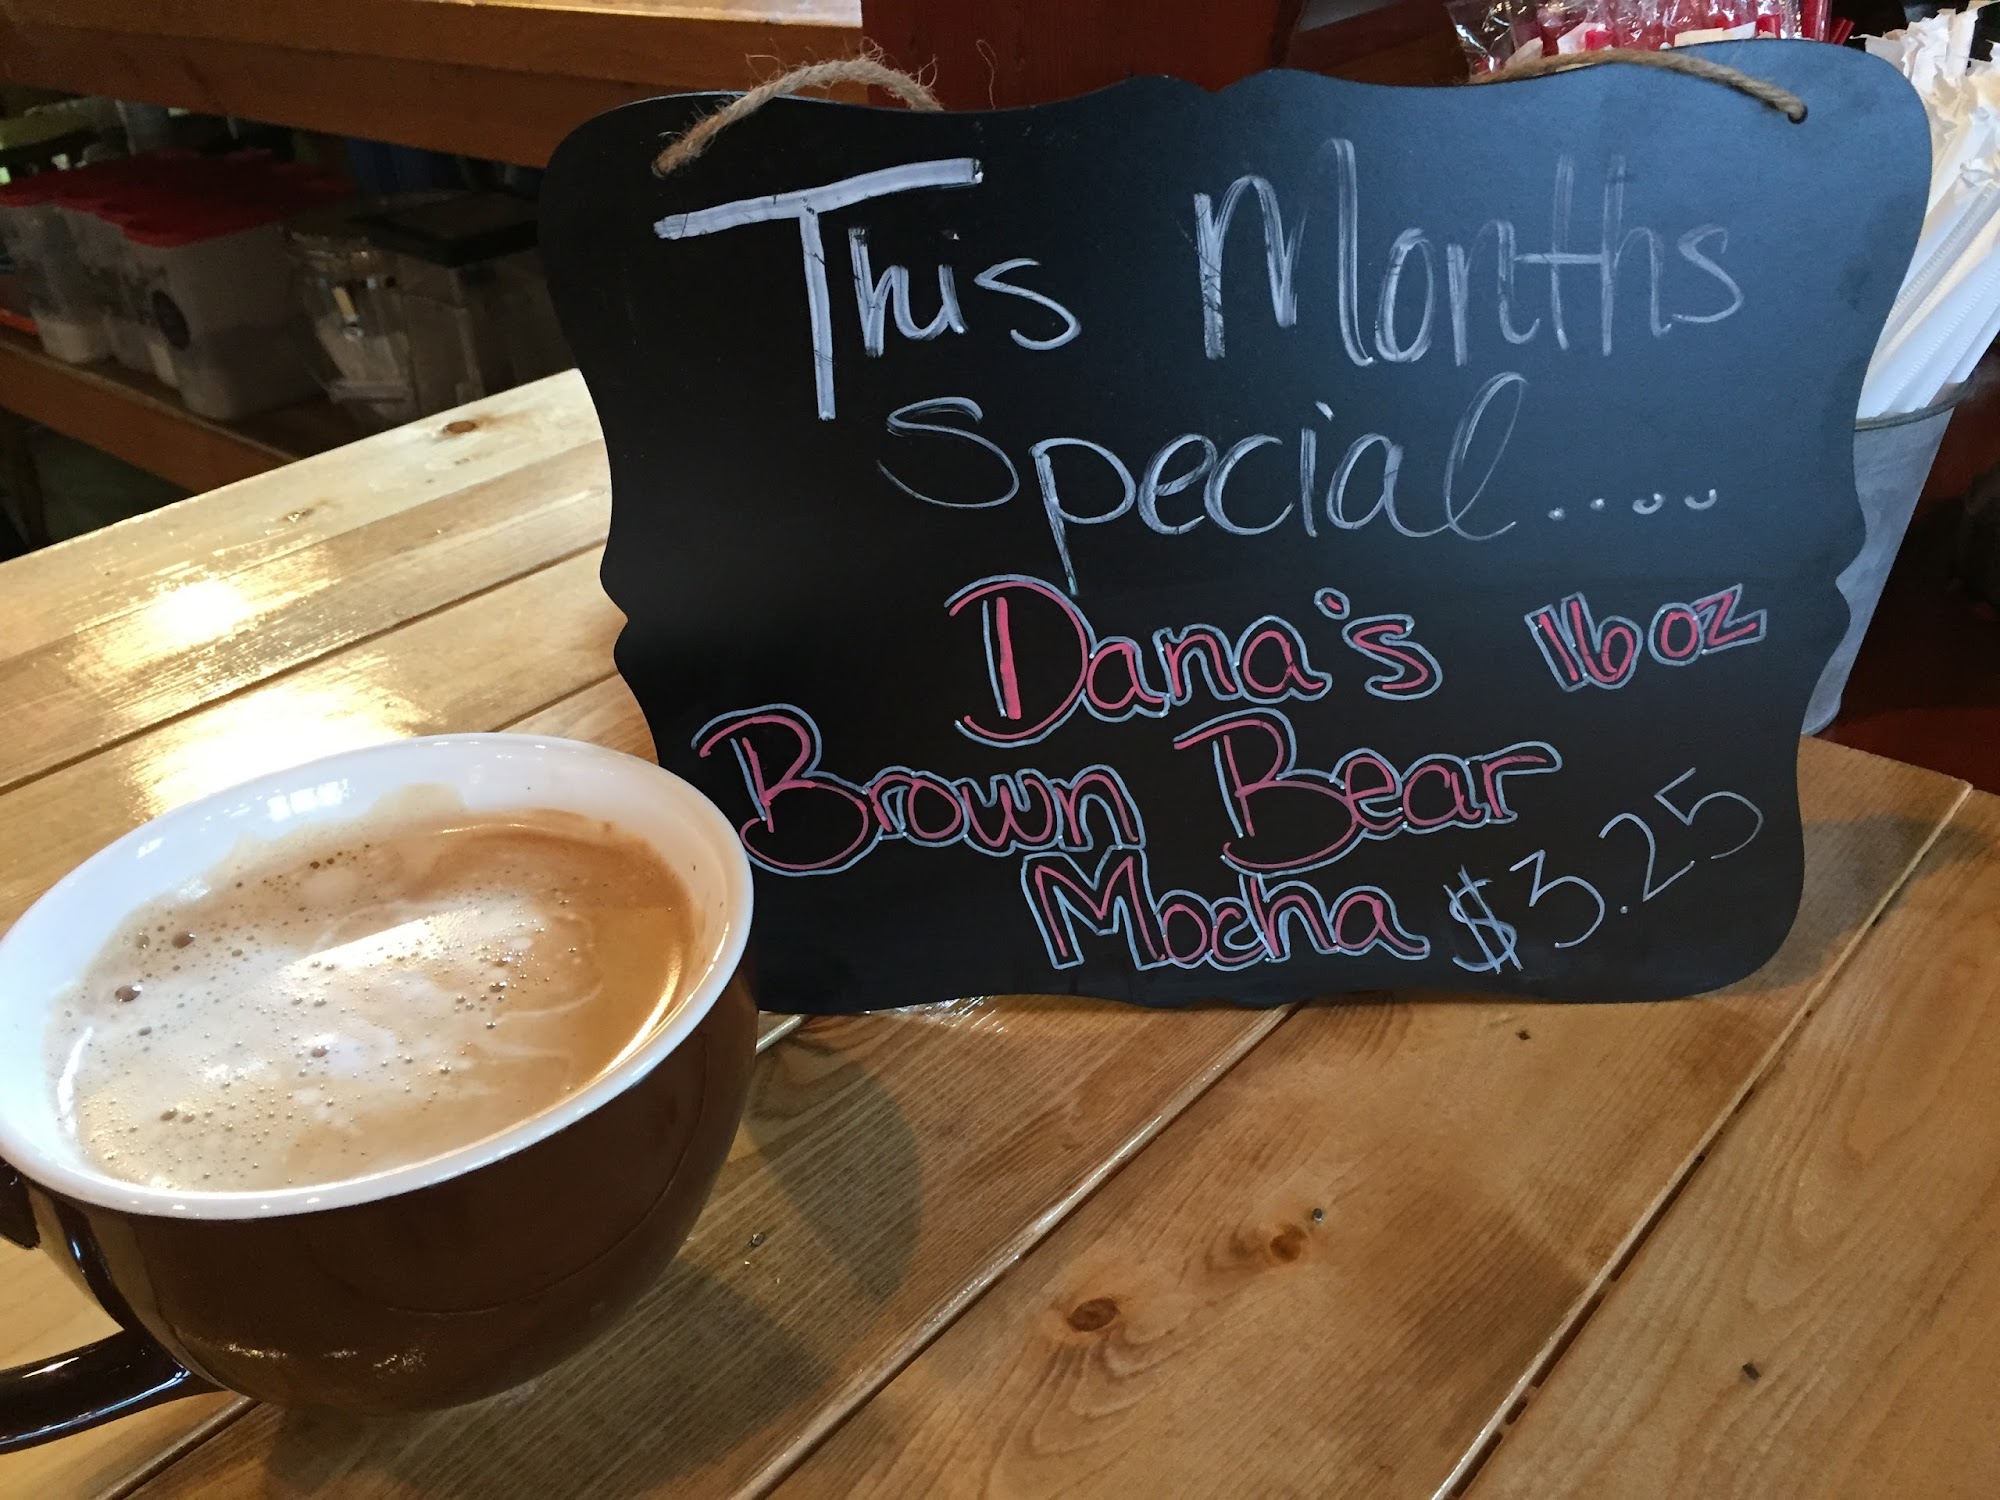 This Months
Special....
Dana's 16oz
Brown Bear
Mocha $3.25